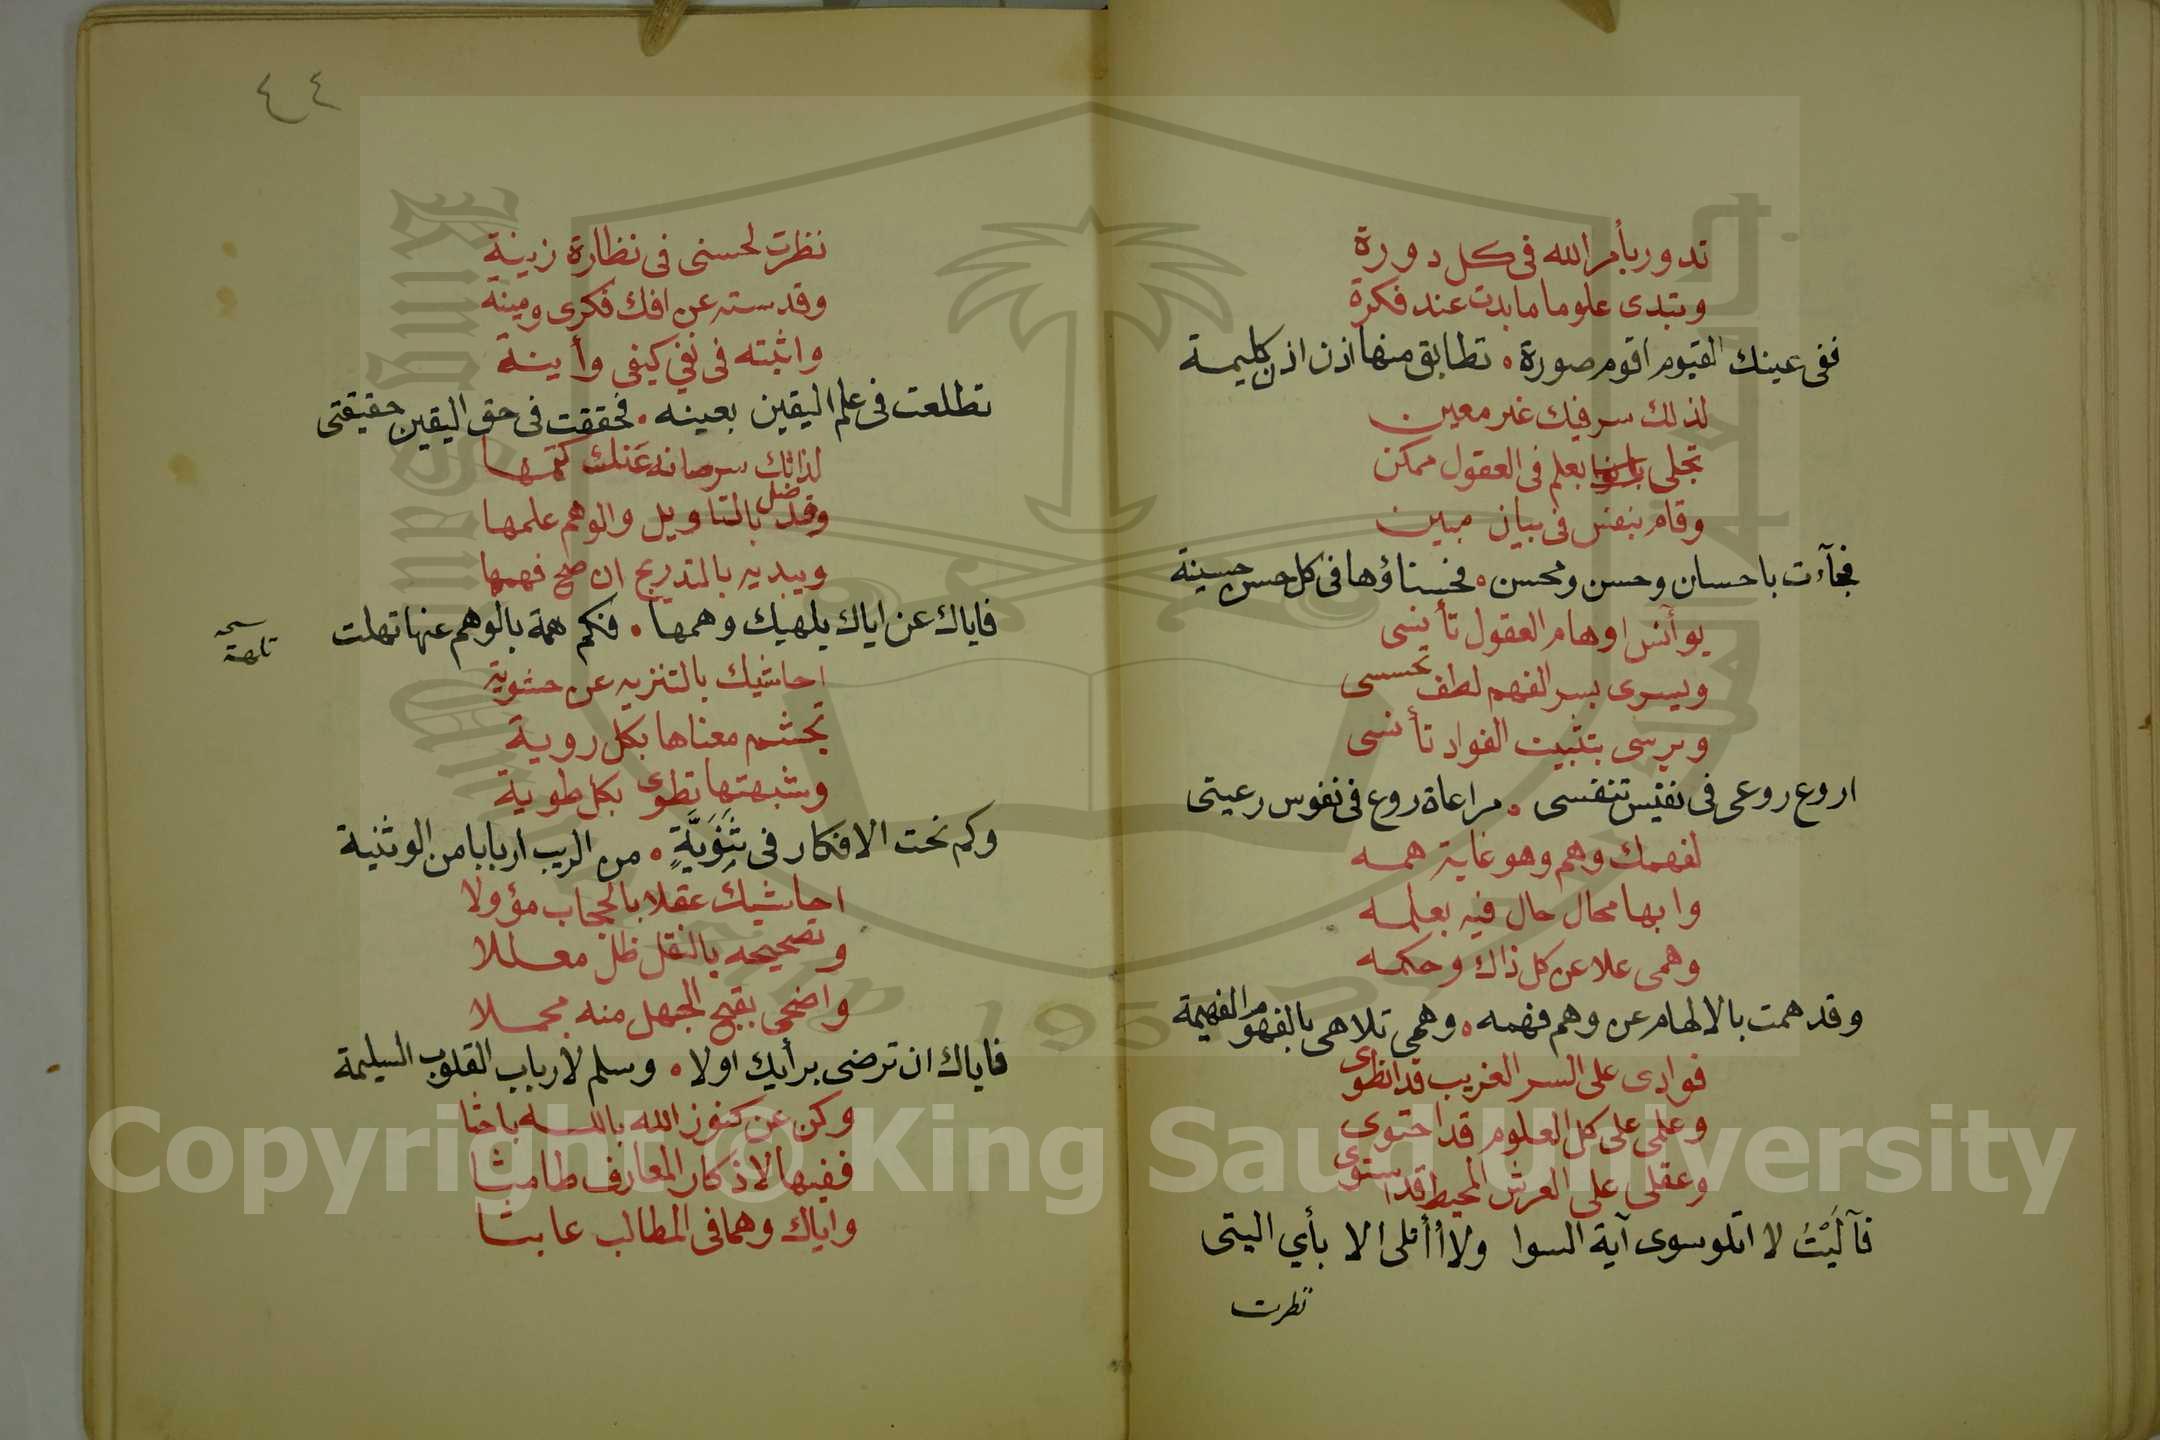 تدور بأمر الله فى كل دورة
وتبدى علوما ما بدت عند فكرة
ففى عينك القيوم اقوم صورة • تطابق منها اذن اذن كليمة
لذلك سر فيك غير معين
تجلى بعلم فى العقول ممكن
وقام بنفس فى بيان مبين
فجآءت باحسان وحسن ومحسن • فحسناؤها فى كل حسن حسينة
يوآنس اوهام العقول تأنسى
ويسرى بسر الفهم لطف تحسسى
ويرسى بتثبيت الفواد تأنسى
اروع روعى فى نفيس تنفسى • مراعاة روع فى نفوس رعيتى
لفهمك وهم وهو غاية همه
وابها محال حال فيه بعلمه
وهمى علا عن كل ذاك وحكمه
وقد همت بالالهام عن وهم فهمه • وهمى تلاهى بالفهوم الفهيمة
فوادى على السر الغريب قد انطوى
وعلمى على كل العلوم قد احتوى
وعقلى على العرش المحيط قد استوى
فآلَيْتُ لا اتلو سوى آية السوا ولا أأتلى الا بأي اليتى
نظرت
٤٤
نظرت لحسنى فى نظارة زينة
وقدسته عن افك فكرى ومينة
واثبته فى نفي كيفى وأينة
تطلعت فى علم اليقين بعينه • فحققت فى حق اليقين حقيقتى
لذاتك سر صانه عَنك كتمها
وقد ضل بالتاويل والوهم علمها
ويبديه بالتدريج ان صح فهمها
فاياك عن اياك يلهيك وهمها • فكم همة بالوهم عنها تهلت
نسخه
تلهت
احاشيك بالتنزيه عن حشوية
تجشم معناها بكل روية
وشبهتها تطوى بكل طوية
وكم نحت الافكار فى ثَنَوَيَّةٍ • من الريب اربابا من الوثنية
احاشيك عقلا بالحجاب مؤولا
وتصحيحه بالنقل ظل معللا
واضحى بقبح الجهل منه مجملا
فاياك ان ترضى برأيك اولا • وسلم لارباب القلوب السليمة
وكن عن كنوز الله بالله باحثا
ففيها لاذكار المعارف طامثا
واياك وهما فى المطالب عابثا